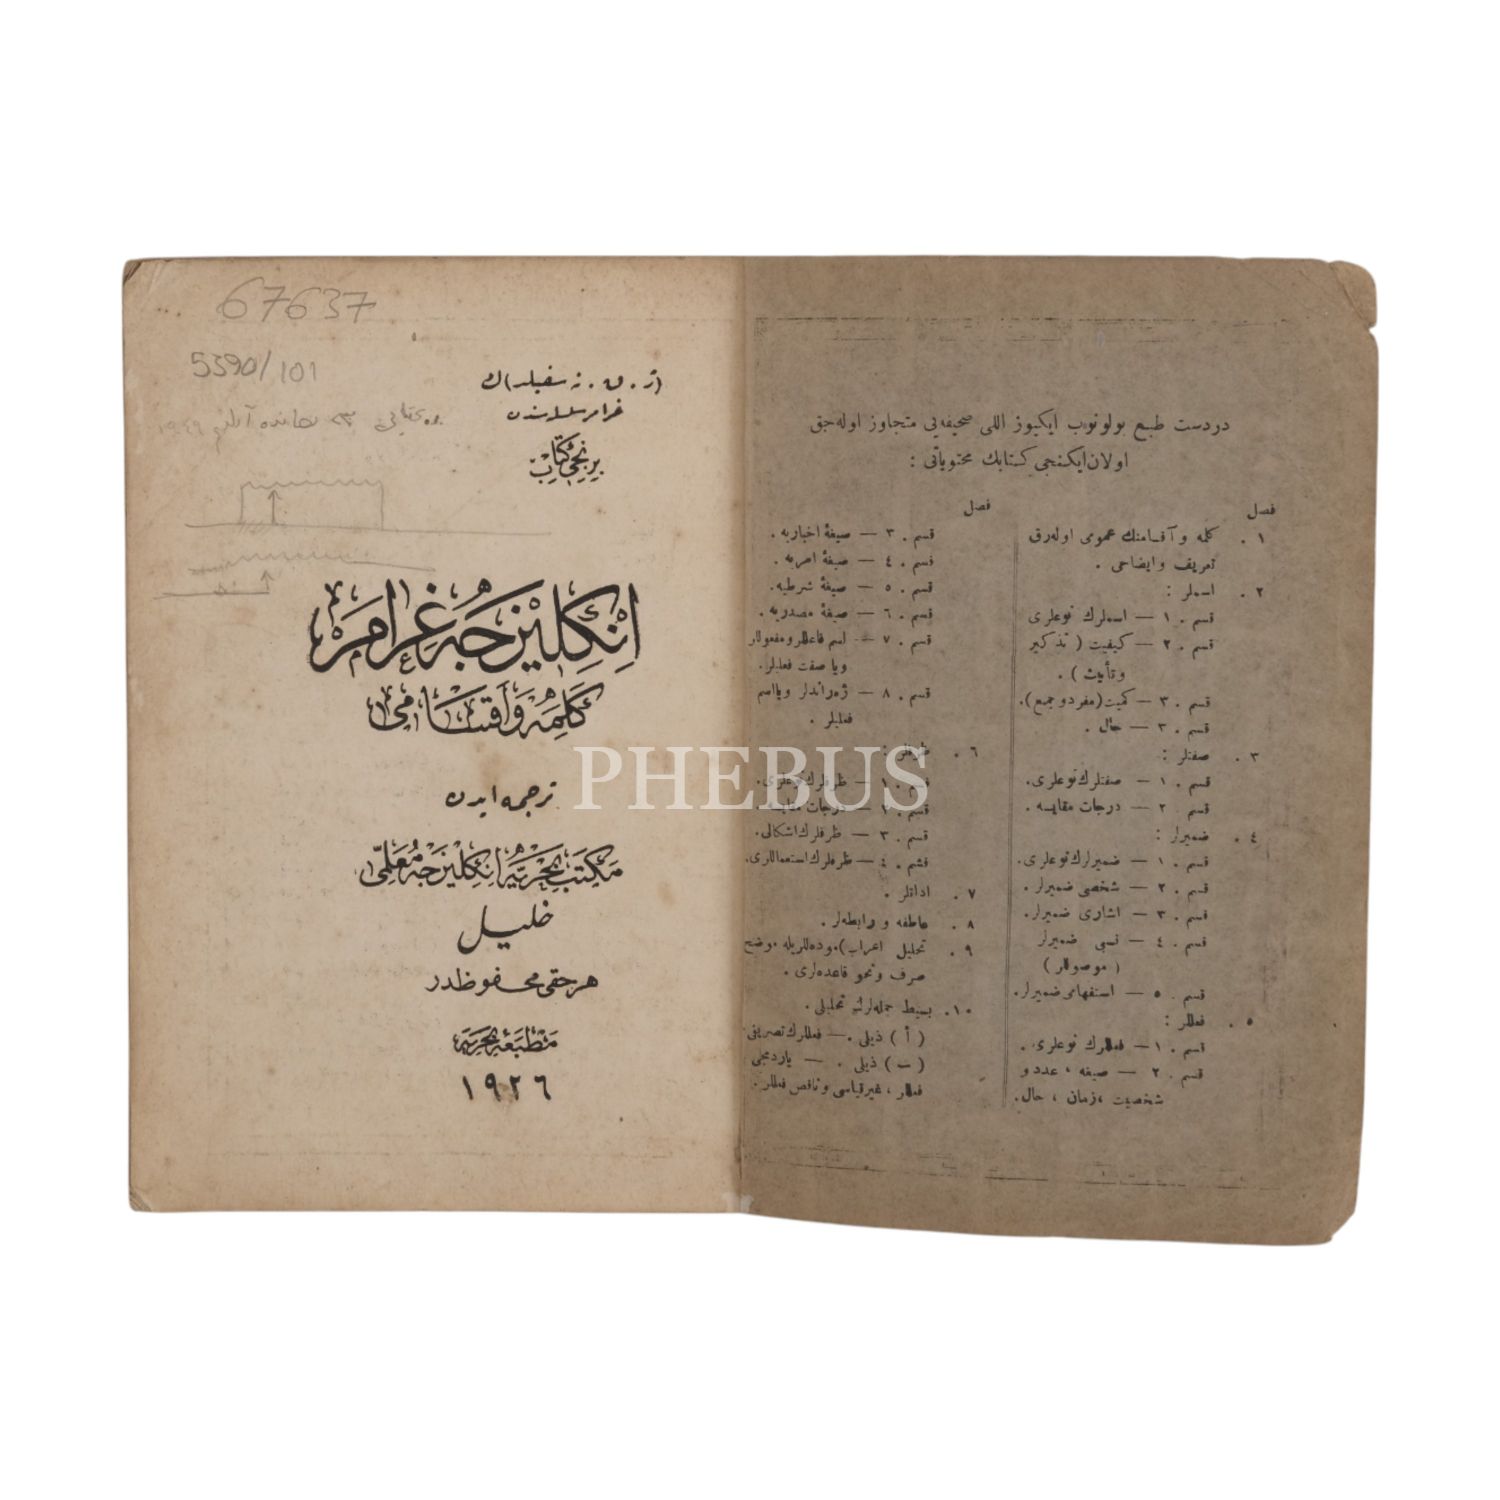 67637
5590/101
(ژ . ق . نه سفیلد) ك
غرامر سلسله سندن
برنجی کتاب
انکلیزجه غرامر
کلمه و اقسامی
ترجمه ایدن
مکتب بحریه انکلیزجه معلمی
خلیل
هر حقی محفوظدر
مطبعهٔ بحریه
١٩٢٦
دردست طبع بولونوب ایکیوز اللی صحیفه‌یی متجاوز اوله‌جق
اولان ایکنجی کتابك محتویاتی :
فصل
١ . کلمه و آقسامنك عمومی اوله‌رق
تعریف و ایضاحی .
٢ . اسملر :
قسم . ١ — اسملرك نوعلری
قسم . ٢ — کیفیت ( تذکیر
و تأنیث ) .
قسم . ٣ — کمیت (مفرد و جمع).
قسم . ٣ — حال .
٣ . صفتلر :
قسم . ١ — صفتلرك نوعلری.
قسم . ٢ — درجات مقایسه .
٤ . ضمیرلر :
قسم . ١ — ضمیرلرك نوعلری.
قسم . ٢ — شخصی ضمیرلر .
قسم . ٣ — اشاری ضمیرلر.
قسم . ٤ — نسبی ضمیرلر
( موصوللر )
قسم . ٥ — استفهامی ضمیرلر.
٥ . فعللر :
قسم . ١ — فعللرك نوعلری .
قسم . ٢ — صیغه ، عدد و
شخصیت ، زمان ، حال.
فصل
قسم . ٣ — صیغهٔ اخباریه .
قسم . ٤ — صیغهٔ امریه .
قسم . ٥ — صیغهٔ شرطیه.
قسم . ٦ — صیغهٔ مصدریه .
قسم . ٧ — اسم فاعللر و مفعوللر
ویا صفت فعلیلر.
قسم . ٨ — ژه‌راندلر ویا اسم
فعلیلر .
٦ . ظرفلر :
قسم . ١ — ظرفلرك نوعلری.
قسم . ٢ — درجات مقایسه .
قسم . ٣ — ظرفلرك اشکالی.
قسم . ٤ — ظرفلرك استعماللری.
٧ . اداتلر .
٨ . عاطفه و رابطه‌لر.
٩ . تحلیل اعراب) موده‌للریله موضح
صرف و نحو قاعده‌لری .
١٠ . بسیط جمله‌لرك تحلیلی .
( أ ) ذیلی . — فعللرك تصریفی
( ب ) ذیلی . — یاردمجی
فعللر ، غیرقیاسی و ناقص فعللر .
PHEBUS